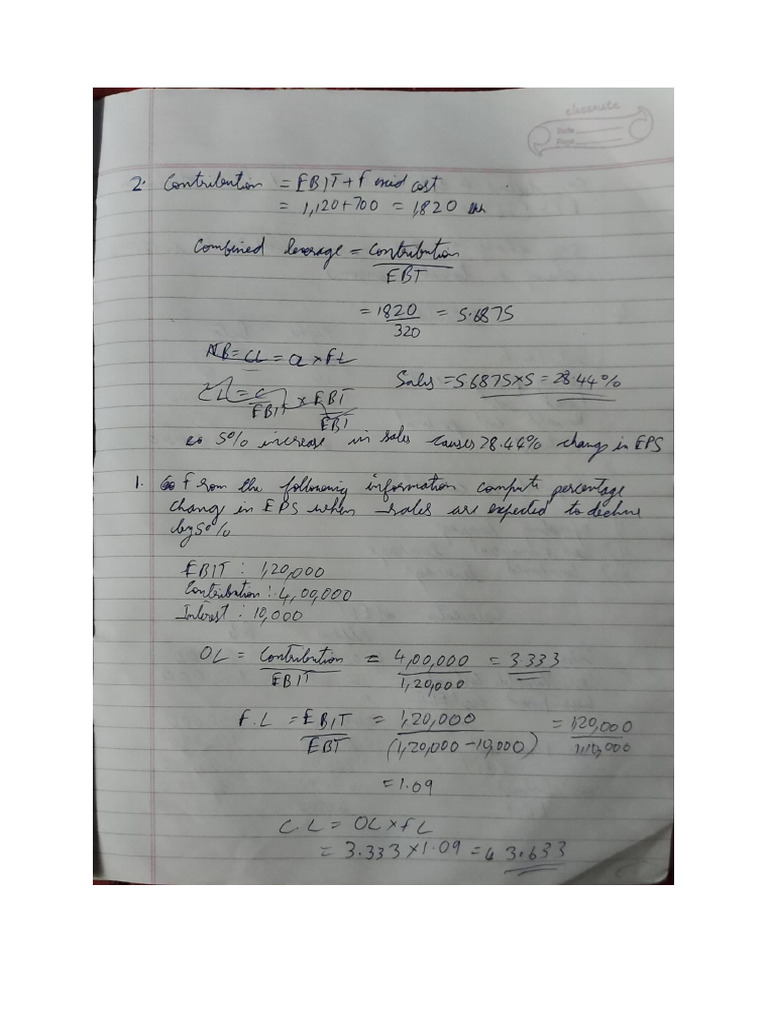 classmate
Date
Page
2. Contribution = EBIT + Fixed cost
= 1,120 + 700 = 1,820
Combined leverage = Contribution
EBT
= 1820 = 5.6875
320
NB = CL = OL × FL
Sales = 5.6875 × 5 = 28.44%
CL = C × EBIT
EBIT EBT
5% increase in sales causes 28.44% change in EPS
1. From the following information compute percentage
change in EPS when sales are expected to decline
by 5%
EBIT : 1,20,000
Contribution : 4,00,000
Interest : 10,000
OL = Contribution = 4,00,000 = 3.333
EBIT 1,20,000
F.L = EBIT = 1,20,000 = 1,20,000
EBT (1,20,000 - 10,000) 1,10,000
= 1.09
C.L = OL × FL
= 3.333 × 1.09 = 3.633